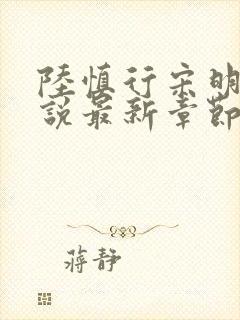 陸慎行宋明
說最新章節
蔣靜